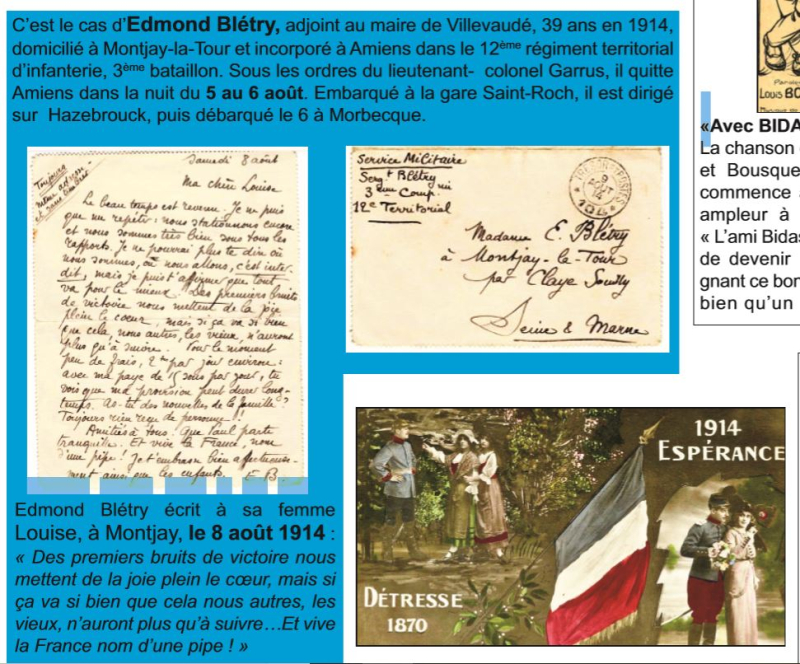 C'est le cas d'Edmond Blétry, adjoint au maire de Villevaudé, 39 ans en 1914,
domicilié à Montjay-la-Tour et incorporé à Amiens dans le 12ème régiment territorial
d'infanterie, 3ème bataillon. Sous les ordres du lieutenant- colonel Garrus, il quitte
Amiens dans la nuit du 5 au 6 août. Embarqué à la gare Saint-Roch, il est dirigé
sur Hazebrouck, puis débarqué le 6 à Morbecque.
Samedi 8 août
Toujours
même adresse
et sans timbres
Ma chère Louise
Le beau temps est revenu. Je ne puis
que me répéter : nous stationnons encore
et nous sommes très bien sous tous les
rapports. Je ne pourrai plus te dire où
nous sommes, où nous allons, c'est inter-
dit, mais je puis t'affirmer que tout
va pour le mieux. Des premiers bruits
de victoire nous mettent de la joie
plein le cœur, mais si ça va si bien
que cela, nous autres, les vieux, n'auront
plus qu'à suivre. Pour le moment
peu de frais, 2 par jour environ :
avec ma paye de 15 sous par jour, tu
vois que ma provision peut durer long-
temps. As-tu des nouvelles de la famille ?
Toujours rien reçu de personne !!
Amitiés à tous. Que Paul parte
tranquille. Et vive la France, nom
d'une pipe ! Je t'embrasse bien affectueuse-
ment ainsi que les enfants. E B
Service Militaire
Sergt Blétry
3ème Comp.
12e Territorial
9
AOUT
14
Madame E. Blétry
à Montjay-la-Tour
par Claye Souilly
Seine & Marne
Edmond Blétry écrit à sa femme
Louise, à Montjay, le 8 août 1914 :
« Des premiers bruits de victoire nous
mettent de la joie plein le cœur, mais si
ça va si bien que cela nous autres, les
vieux, n'auront plus qu'à suivre…Et vive
la France nom d'une pipe ! »
1914
ESPÉRANCE
DÉTRESSE
1870
LOUIS BO
«Avec BIDA
La chanson
et Bousque
commence
ampleur à
« L'ami Bidas
de devenir
gnant ce bor
bien qu'un